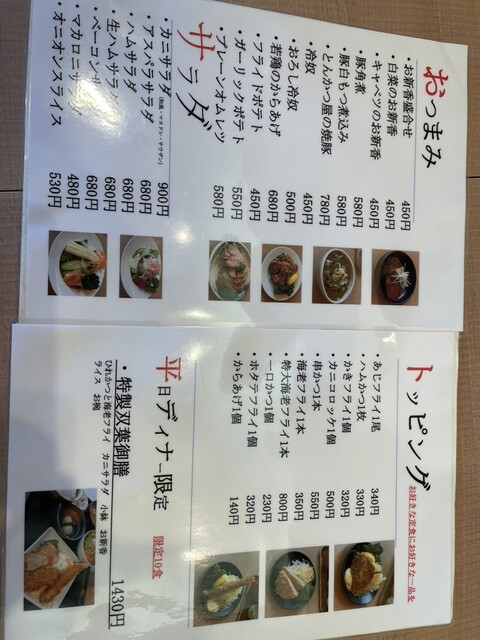 おつまみ
・お新香盛合せ 450円
・白菜のお新香 450円
・キャベツのお新香 450円
・豚角煮 580円
・豚白もつ煮込み 580円
・とんかつ屋の焼豚 780円
・冷奴 450円
・おろし冷奴 500円
・若鶏のからあげ 680円
・フライドポテト 450円
・ガーリックポテト 550円
・プレーンオムレツ 580円
サラダ
・カニサラダ (和風・マヨドレ・サウザン) 900円
・アスパラサラダ 680円
・ハムサラダ 680円
・生ハムサラダ 680円
・ベーコンサラダ 680円
・マカロニサラダ 480円
・オニオンスライス 530円
トッピング お好きな定食にお好きな一品を
・あじフライ1尾 340円
・ハムかつ1枚 330円
・かきフライ1個 320円
・カニコロッケ1個 500円
・串かつ1本 550円
・海老フライ1本 350円
・特大海老フライ1本 800円
・一口かつ1個 230円
・ホタテフライ1個 320円
・からあげ1個 140円
平日ディナー限定 限定10食
・特製双葉御膳 1430円
ひれかつと海老フライ カニサラダ 小鉢 お新香
ライス お椀